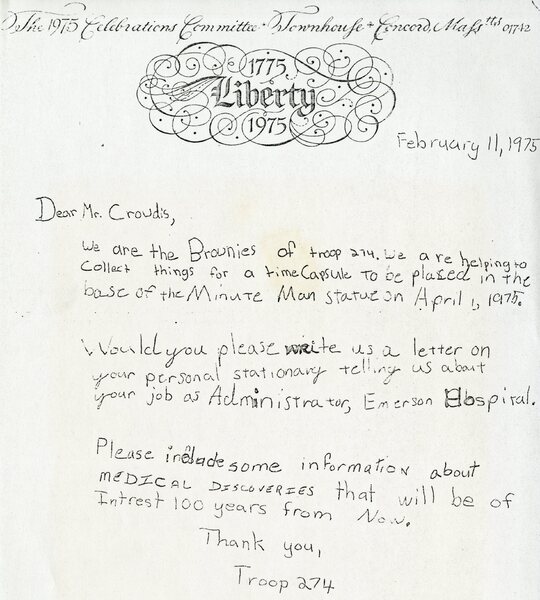 The 1975 Celebrations Committee · Townhouse · Concord, Mass tts 01742
1775
Liberty
1975
February 11, 1975
Dear Mr. Crowdis,
We are the Brownies of troop 274. We are helping to
collect things for a time Capsule to be plased in the
base of the Minute Man statue on April 1, 1975.
Would you please write us a letter on
your personal stationary telling us about
your job as Administrator, Emerson Hospiral.
Please include some information about
MEDICAL DISCOVERIES that will be of
Intrest 100 years from Now.
Thank you,
Troop 274